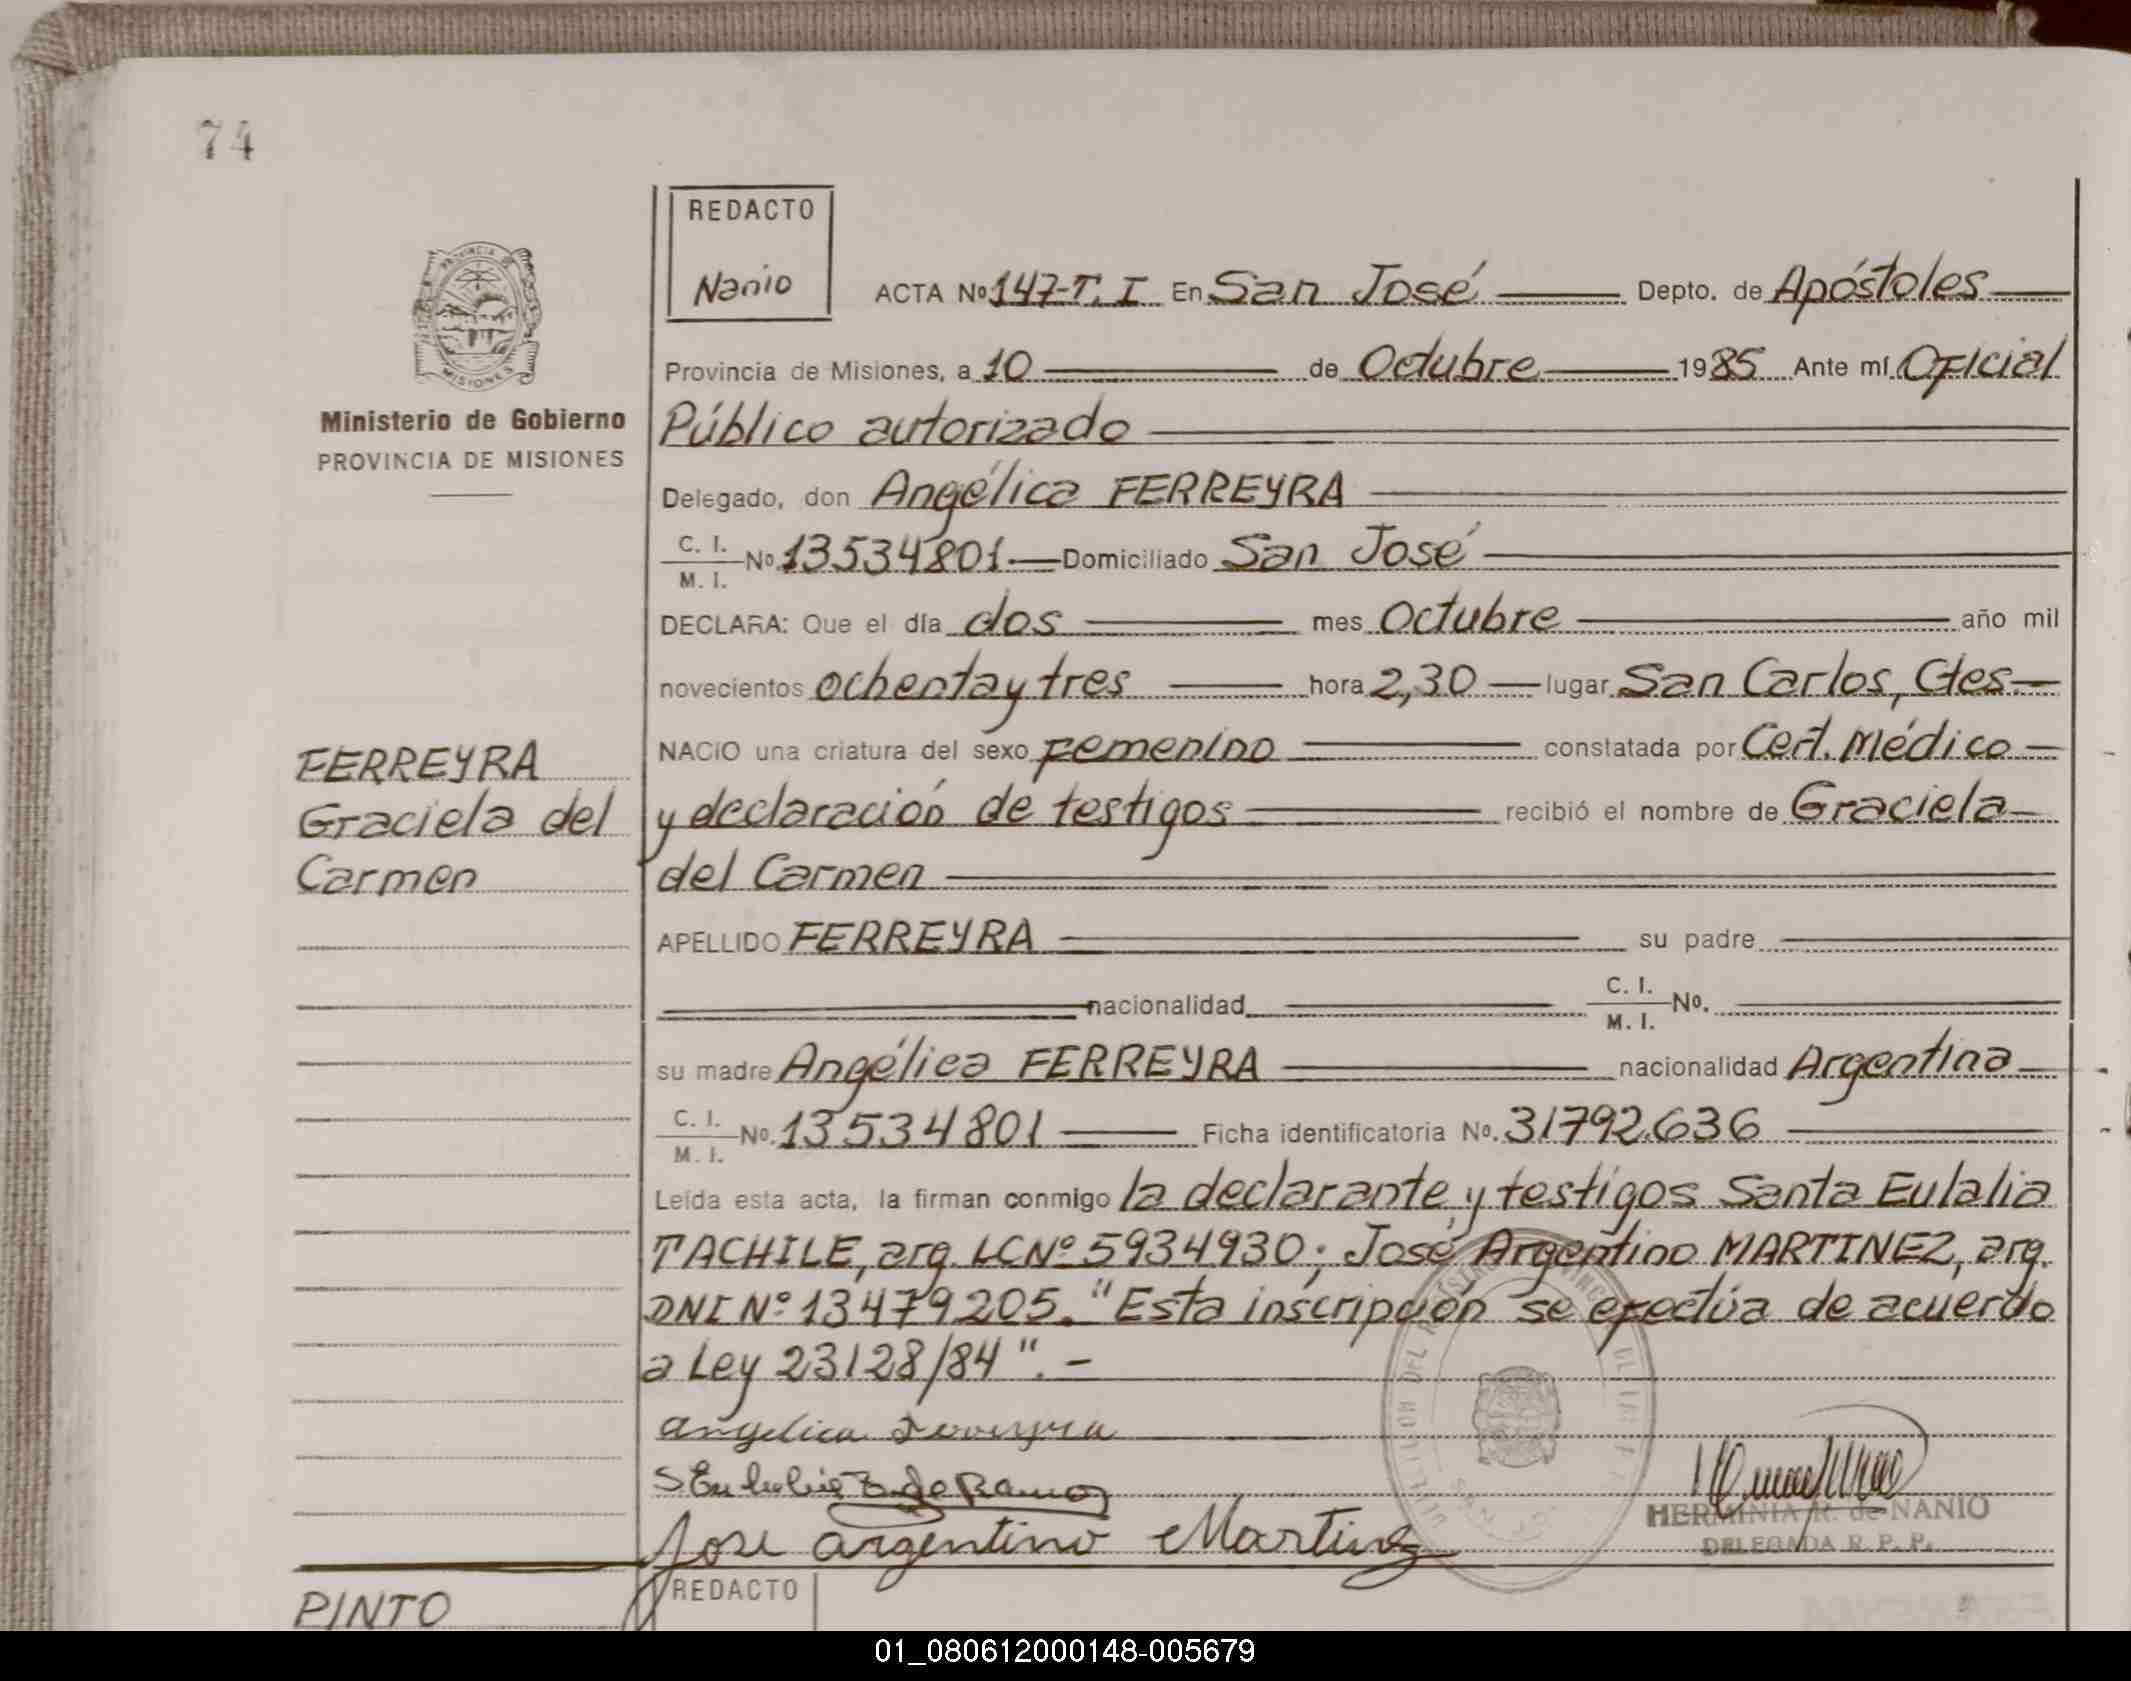 74
REDACTO
Nanio
ACTA Nº 147-T. I En San José Depto. de Apóstoles
PROVINCIA DE
MISIONES
Provincia de Misiones, a 10 de Octubre 1985 Ante mí Oficial
Ministerio de Gobierno
PROVINCIA DE MISIONES
Público autorizado
Delegado, don Angélica FERREYRA
C. I.
M. I. Nº 13534801.— Domiciliado San José
DECLARA: Que el día dos mes Octubre año mil
novecientos ochenta y tres hora 2,30 — lugar San Carlos, Ctes.—
NACIO una criatura del sexo femenino constatada por Cert. Médico —
FERREYRA
Graciela del
Carmen
y declaración de testigos recibió el nombre de Graciela —
del Carmen
APELLIDO FERREYRA su padre
nacionalidad C. I.
M. I. Nº.
su madre Angélica FERREYRA nacionalidad Argentina
C. I.
M. I. Nº. 13534801 Ficha identificatoria Nº. 31792.636
Leída esta acta, la firman conmigo la declarante y testigos Santa Eulalia
TACHILE, arg. LC Nº 5934930; José Argentino MARTINEZ, arg.
DNI Nº 13479205. "Esta inscripción se efectúa de acuerdo
a Ley 23128/84". —
angelica Ferreyra
S Eulalia de Ramos
Jose argentino Martinez
HERMINIA R. de NANIO
DELEGADA R. P. P.
REDACTO
PINTO
01_080612000148-005679